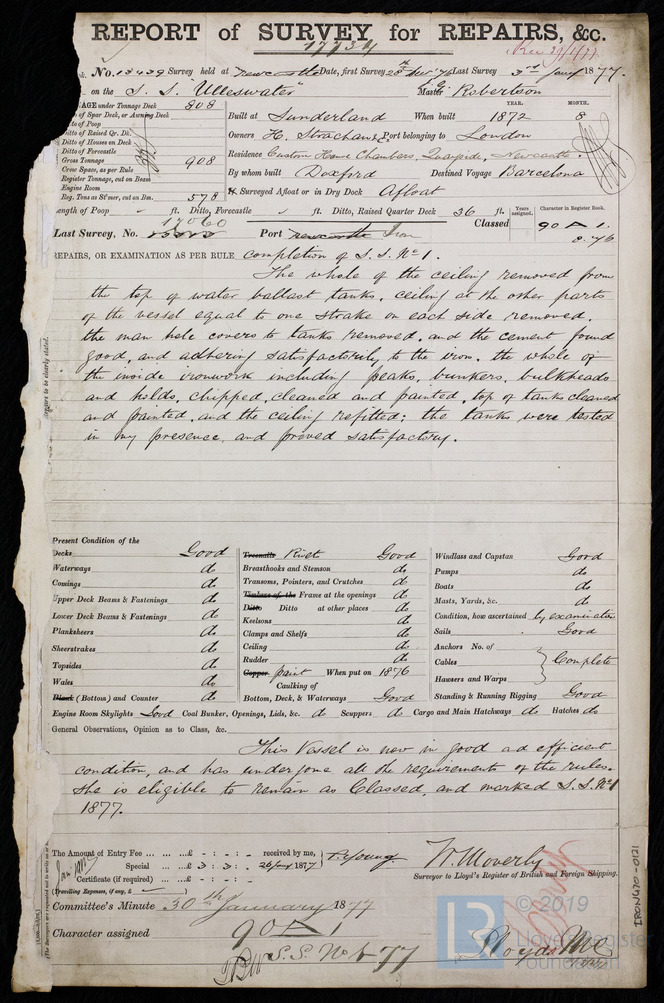 REPORT of SURVEY for REPAIRS, &c.
17734
Rec 29/1/77
No. 13439 Survey held at Newcastle Date, first Survey 28th Nov '76 Last Survey 3rd Jany 1877.
on the S. S. Ulleswater Master G. Robertson
TONNAGE under Tonnage Deck 808
Ditto of Spar Deck, or Awning Deck
Ditto of Poop
Ditto of Raised Qr. Dk.
Ditto of Houses on Deck
Ditto of Forecastle
Gross Tonnage 908
Crew Space, as per Rule
Register Tonnage, cut on Beam
Engine Room
Reg. Tons as St'mer, cut on Bm. 578
YEAR. MONTH.
Built at Sunderland When built 1872 8
Owners H. Strachan & Co Port belonging to London
Residence Custom House Chambers, Quayside, Newcastle.
By whom built Doxford Destined Voyage Barcelona
If Surveyed Afloat or in Dry Dock Afloat
Length of Poop ft. Ditto, Forecastle ft. Ditto, Raised Quarter Deck 36 ft.
Years assigned. Character in Register Book.
Classed 90 A 1.
8.76
17060
Last Survey, No. Port Newcastle Iron
REPAIRS, OR EXAMINATION AS PER RULE, completion of S. S. No 1.
The whole of the ceiling removed from
the top of water ballast tanks, ceiling at the other parts
of the vessel equal to one strake on each side removed,
the man hole covers to tanks removed, and the cement found
good, and adhering satisfactorily to the iron. the whole of
the inside ironwork including peaks, bunkers, bulkheads
and holds, chipped, cleaned and painted, top of tanks cleaned
and painted, and the ceiling refitted; the tanks were tested
in my presence, and proved satisfactory.
Present Condition of the
Decks Good
Waterways do
Comings do
Upper Deck Beams & Fastenings do
Lower Deck Beams & Fastenings do
Planksheers do
Sheerstrakes do
Topsides do
Wales do
Black (Bottom) and Counter do
Treenails Rivets Good
Breasthooks and Stemson do
Transoms, Pointers, and Crutches do
Timbers of the Frame at the openings do
Ditto Ditto at other places do
Keelsons do
Clamps and Shelfs do
Ceiling do
Rudder do
Copper paint When put on 1876
Caulking of
Bottom, Deck, & Waterways Good
Windlass and Capstan Good
Pumps do
Boats do
Masts, Yards, &c. do
Condition, how ascertained by examination
Sails Good
Anchors No. of
Cables Complete
Hawsers and Warps
Standing & Running Rigging Good
Engine Room Skylights Good Coal Bunker, Openings, Lids, &c. do Scuppers do Cargo and Main Hatchways do Hatches do
General Observations, Opinion as to Class, &c.
This Vessel is now in good and efficient
condition, and has undergone all the requirements of the rules.
She is eligible to remain as Classed, and marked S.S. No 1
1877.
The Amount of Entry Fee £ - : - : - received by me,
Special £ 3 : 3 : - 26 Jany 1877
Certificate (if required) £ - : - : -
(Travelling Expenses, if any, £
W. Moverly
Surveyor to Lloyd's Register of British and Foreign Shipping.
Committee's Minute 30th January 1877
Character assigned 90 A 1
S.S. No 1 77
Lloyds MC
IRON470-0121
© 2019
Lloyd's Register
Foundation